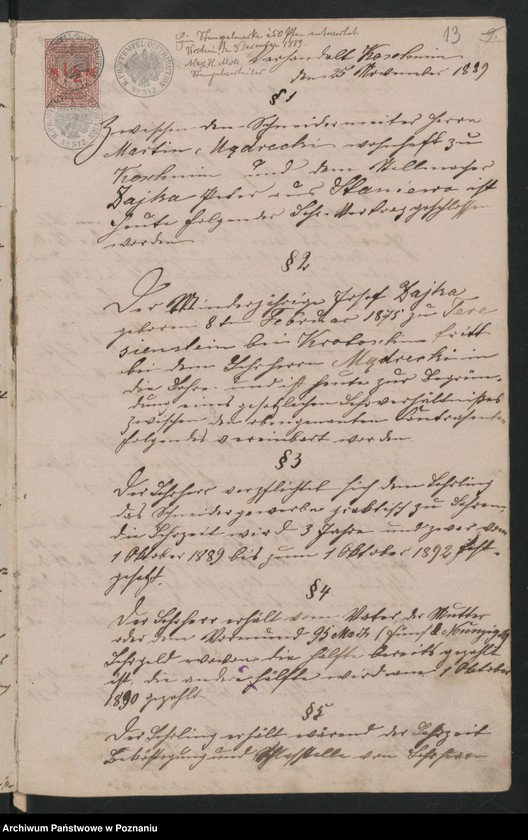 Ein Stempelmarke à 50 Pfen entwerthet
Koschmin den 3 Dezember 1889.
13 9.
K. PR. STEMPEL-DISTRIBUTION
No 512
verhandelt Koschmin
den 25 November 1889
§ 1
Zwischen dem Schneidermeister Herrn
Martin Mądrecki wohnhaft zu
Koschmin und dem Stellmacher
Bajka Peter aus Staniewo ist
heute folgender Lehr-Vertrag geschlossen
worden
§ 2
Der Minderjährige Josef Bajka
geboren 8ten Februar 1875 zu There
sienstein bei Krotoschin tritt
bei dem Lehrherrn Mądrecki in
die Lehre und ist heute zur Begrün-
dung eines gesetzlichen Lehrverhältnißes
zwischen den obengenanten Contrahenten
folgendes vereinbart worden
§ 3
Der Lehrherr verpflichtet sich dem Lehrling
das Schneidergewerbe praktisch zu Lehren,
die Lehrzeit wird 3 Jahre und zwar vom
1 Oktober 1889 bis zum 1 Oktober 1892 fest-
gesetzt.
§ 4
Der Lehrherr erhält vom Vater der Mutter
oder dem Vormund 95 Mark (fünf & Neunzig)
Lehrgeld wovon die hälfte bereits gezahlt
ist, die andere hälfte wird am 1 Oktober
1890 gezahlt
§ 5
Der Lehrling erhält wärend der Lehrzeit
Beköstigung und Schlafstelle vom Lehrherrn
Archiwum Państwowe w Poznaniu